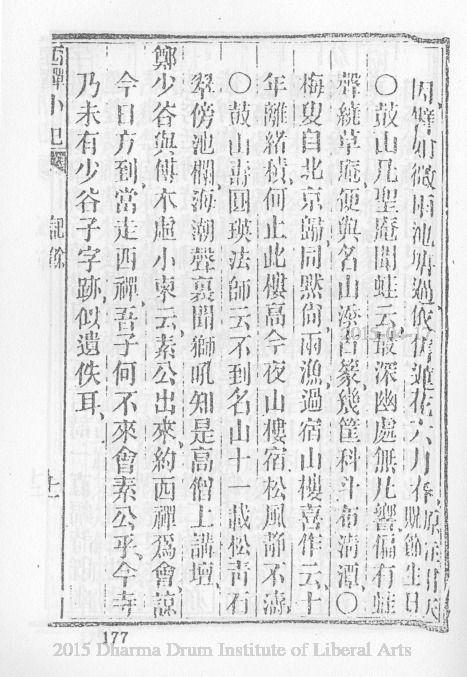 因譬如微雨池塘過依倚蓮花六月春
○鼓山凡聖庵聞蛙云最深幽處無凡響偏有蛙
聲繞草庵便與名山添吉篆幾筐科斗布清潭○
梅叟自北京歸同默尙雨漁過宿山樓喜作云十
年離緒積何止此樓高今夜山樓宿松風靜不濤
○鼓山壽圓瑛法師云不到名山十一載松靑石
翠傍池欄海潮聲裏聞獅吼知是高僧上講壇
鄭少谷與傅木虛小柬云素公出來約西禪爲會諒
今日方到當走西禪吾子何不來會素公乎今寺
乃未有少谷子字跡似遺佚耳
西禪小記 記餘 十一
177
2015 Dharma Drum Institute of Liberal Arts